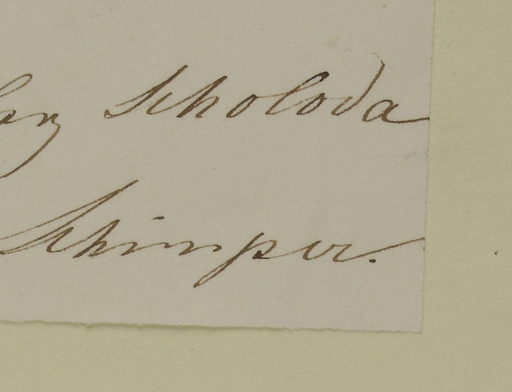 Scholoda
Schimper.